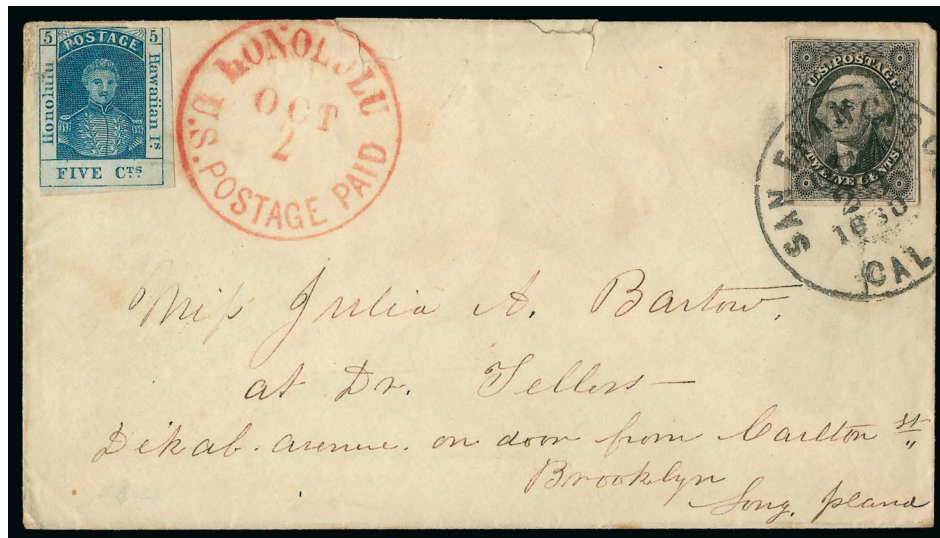 5 POSTAGE 5
Honolulu
Hawaiian Is.
FIVE CTS
HONOLULU
OCT
2
U.S. POSTAGE PAID
U.S. POSTAGE
TWELVE CENTS
SAN FRANCISCO
CAL
Miss Julia A. Bartow.
at Dr. Sellers—
Dekab. avenue. on door from Carlton st
Brooklyn
Long Island